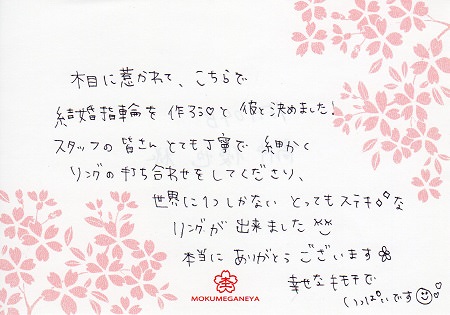 木目に惹かれて、こちらで
結婚指輪を作ろう♡と彼と決めました!
スタッフの皆さんとても丁寧で細かく
リングの打ち合わせをしてくださり、
世界に1つしかないとってもステキな
リングが出来ました
本当にありがとうございます
幸せなキモチで
いっぱいです
MOKUMEGANEYA